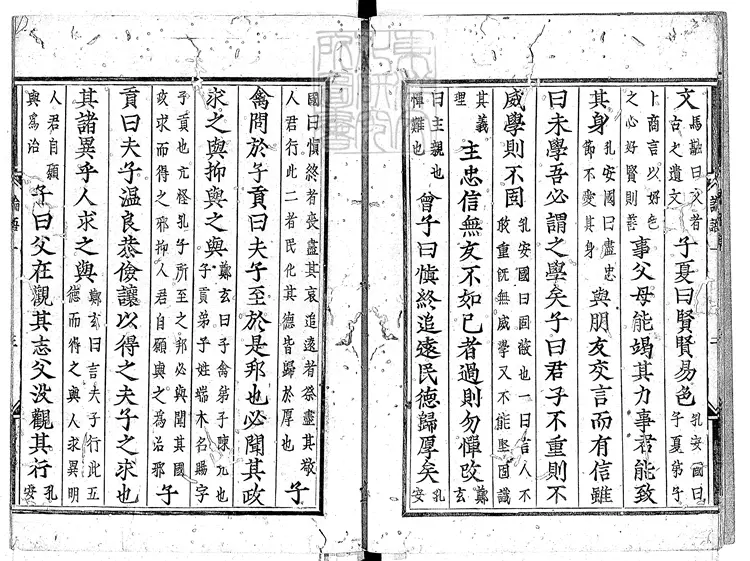 文馬融曰文者古之遺文子夏曰賢賢易色孔安國曰子夏弟子
卜商言以好色之心好賢則善事父母能竭其力事君能致
其身孔安國曰盡忠節不愛其身與朋友交言而有信雖
曰未學吾必謂之學矣子曰君子不重則不
威學則不固孔安國曰固蔽也一曰言人不敢重既無威學又不能堅固識
其義理主忠信無友不如己者過則勿憚改鄭玄
曰主親也憚難也曾子曰慎終追遠民德歸厚矣孔安
國曰慎終者喪盡其哀追遠者祭盡其敬人君行此二者民化其德皆歸於厚也子
禽問於子貢曰夫子至於是邦也必聞其政
求之與抑與之與鄭玄曰子禽弟子陳亢也子貢弟子姓端木名賜字
子貢也亢怪孔子所至之邦必與聞其國政求而得之邪抑人君自願與之為治邪子
貢曰夫子温良恭儉讓以得之夫子之求也
其諸異乎人求之與鄭玄曰言夫子行此五德而得之與人求異明
人君自願與爲治子曰父在觀其志父没觀其行孔安
論語一